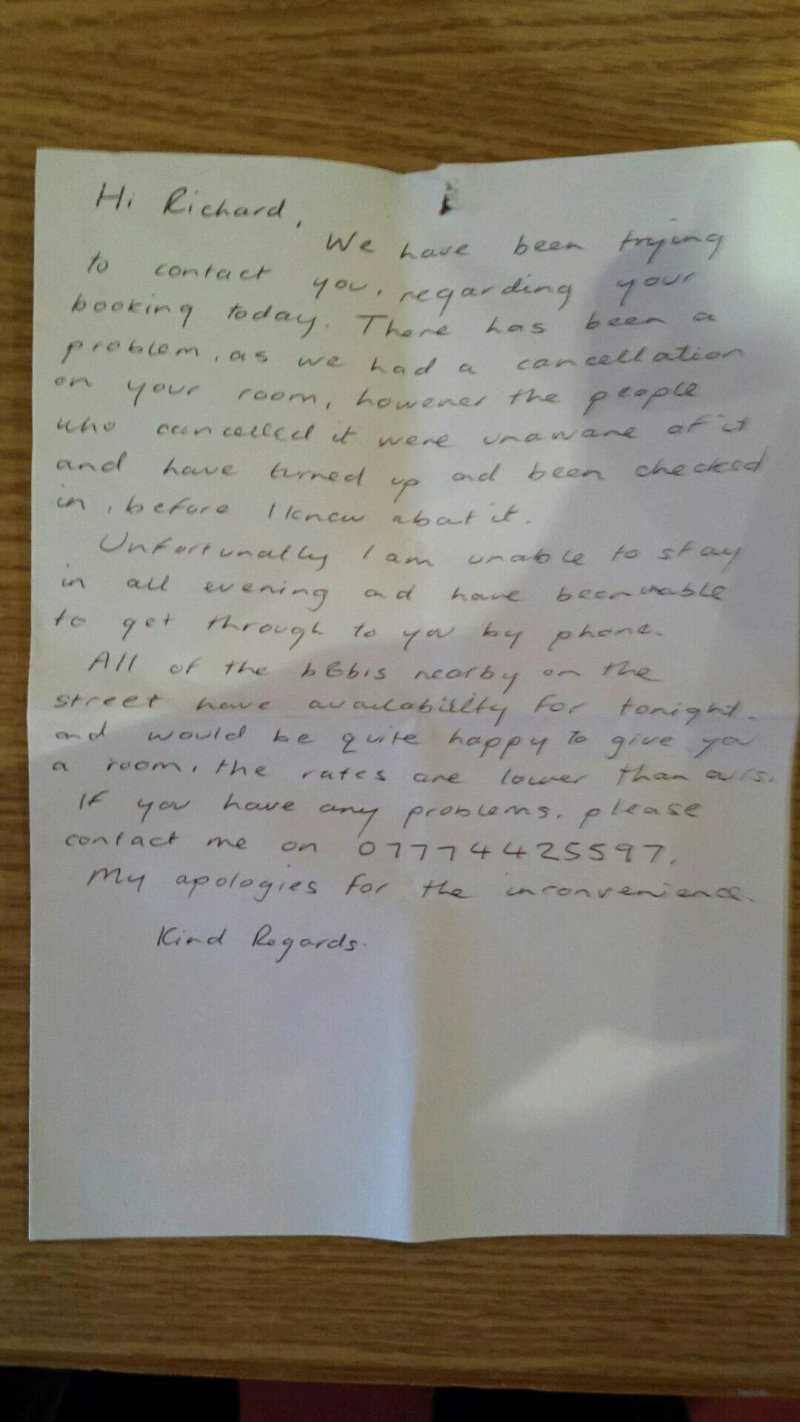 Hi Richard,
We have been trying
to contact you, regarding your
booking today. There has been a
problem, as we had a cancellation
on your room, however the people
who cancelled it were unaware of it
and have turned up and been checked
in, before I knew about it.
Unfortunatly I am unable to stay
in all evening and have been unable
to get through to you by phone.
All of the b&bis nearby on the
street have availability for tonight.
and would be quite happy to give you
a room, the rates are lower than ours.
If you have any problems, please
contact me on 07774425597.
My apologies for the inconvenience.
Kind Regards.